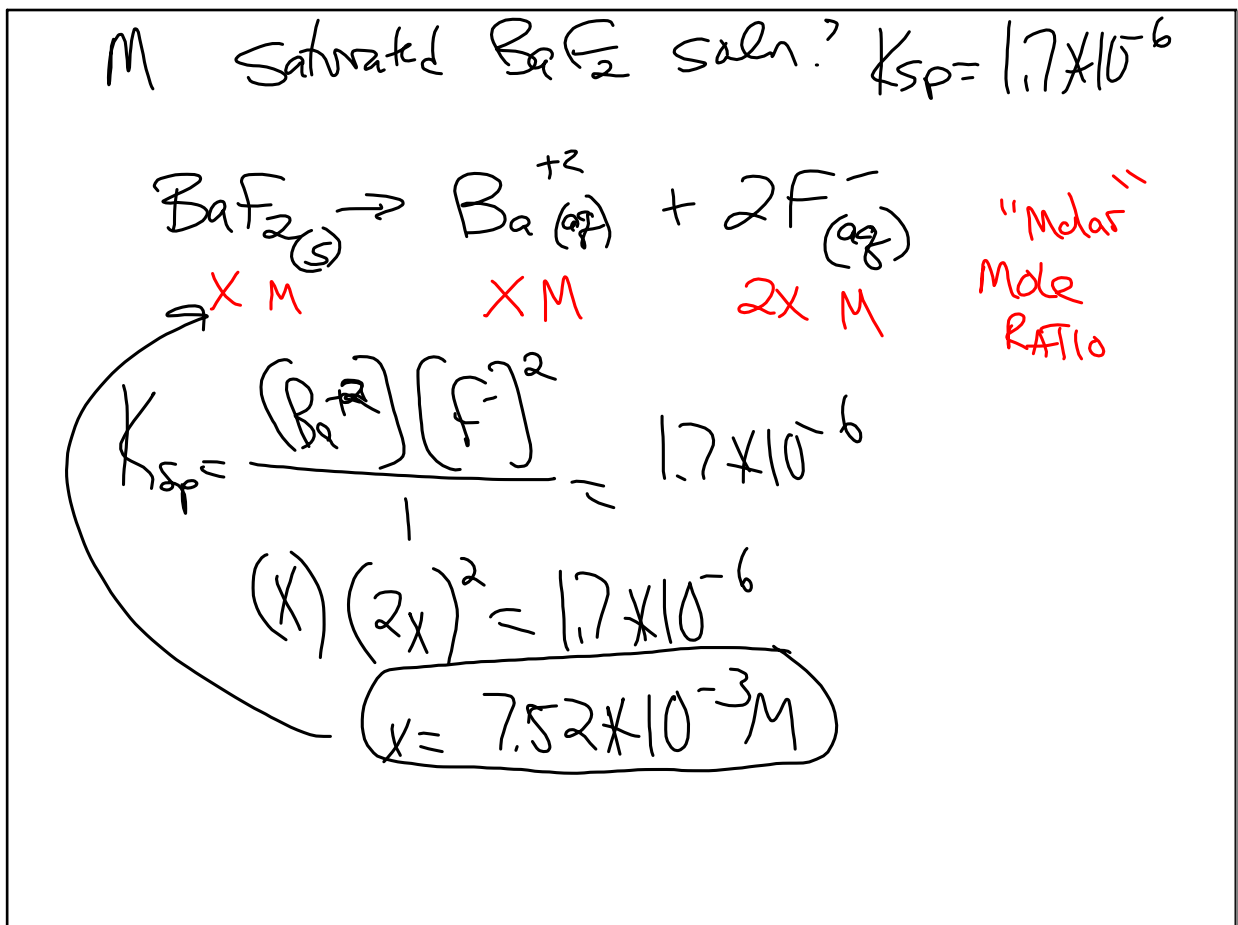 M saturated BaF₂ soln? Ksp = 1.7×10⁻⁶
BaF₂(s) → Ba⁺²(aq) + 2F⁻(aq)
"Molar"
X M X M 2X M Mole
RATIO
Ksp = [Ba⁺²][F⁻]² / 1 = 1.7×10⁻⁶
(X)(2x)² = 1.7×10⁻⁶
x = 7.52×10⁻³ M